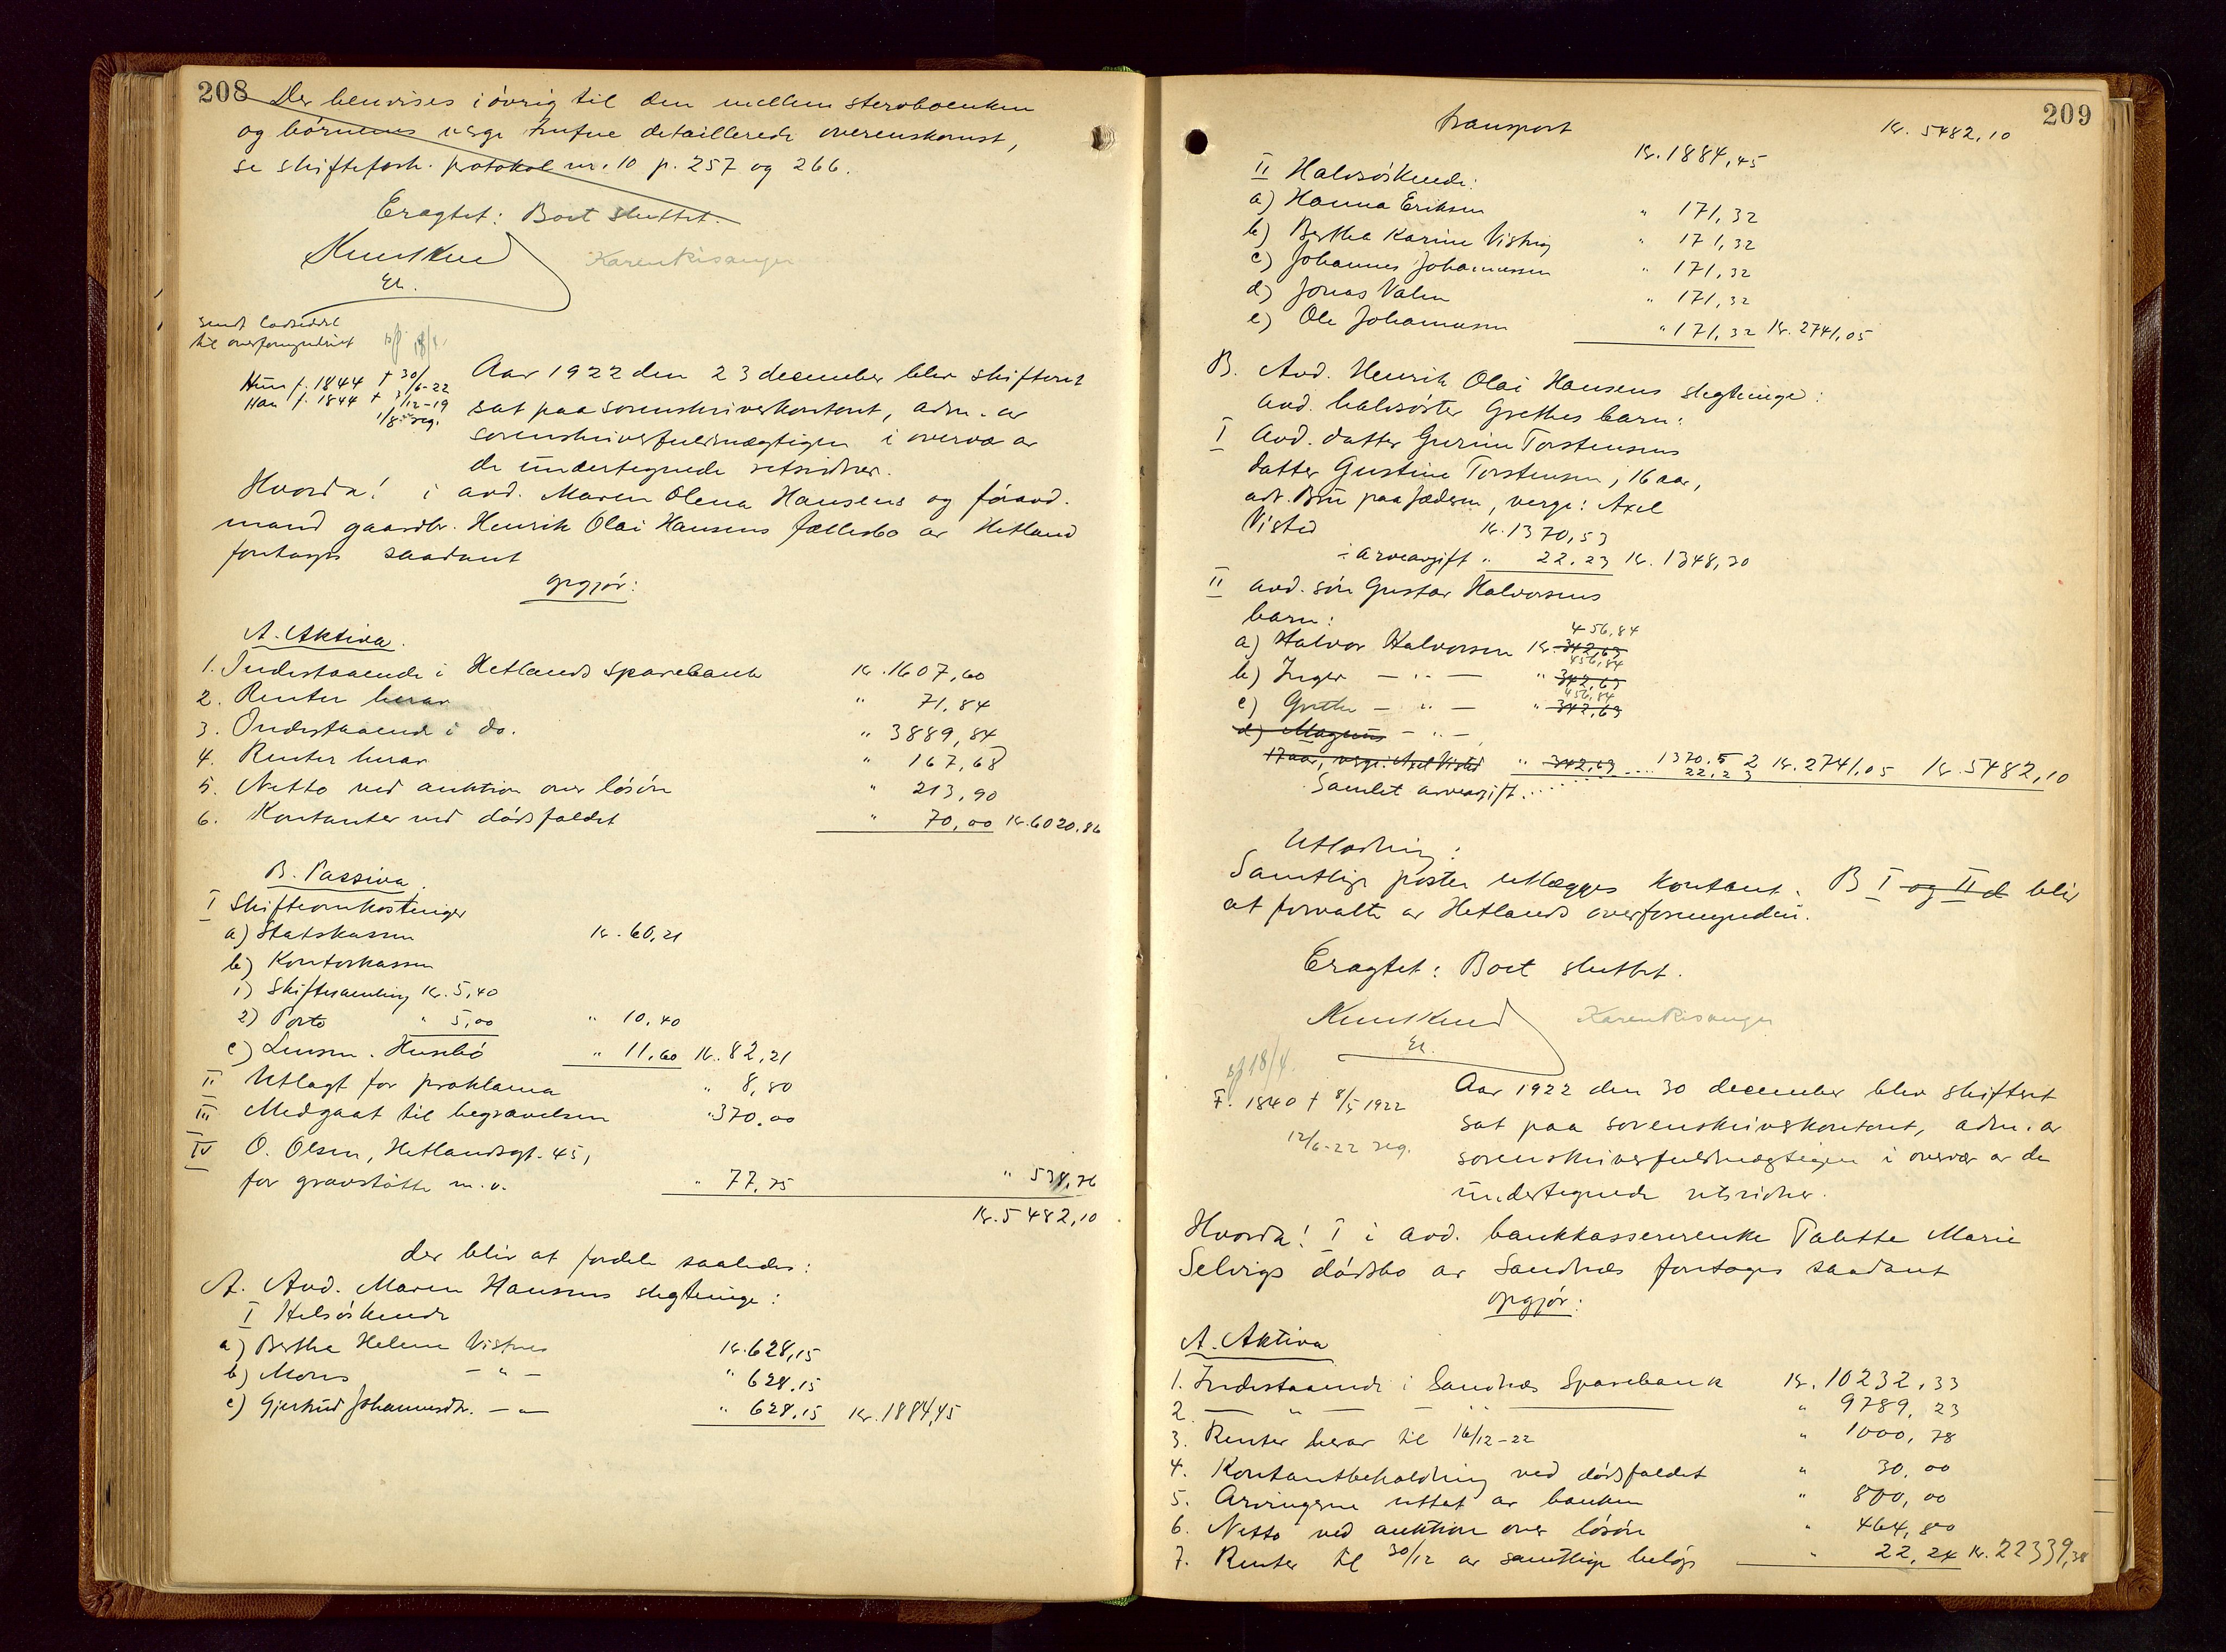 208
Der henvises i øvrig til den mellem stervboenken
og børnenes verge trufne detaillerede overenskomst,
se skifteforh. protokol nr. 10 p. 257 og 266.
Eragtet: Boet sluttet.
Karen Risanger
Et.
sendt lodseddel
til overformynderiet
18/4.
Hun f. 1844 † 30/6-22
Han f. 1844 † 7/12-19
1/8 s. reg.
Aar 1922 den 23 december blev skifteret
sat paa sorenskriverkontoret, adm. av
sorenskriverfuldmægtigen i overvær av
de undertegnede retsvidner.
Hvorda! i avd. Maren Olena Hansens og føravd.
mand gaardbr. Henrik Olai Hansens fællesbo av Hetland
foretages saadant
opgjør:
A. Aktiva.
1. Indestaaende i Hetlands sparebank kr. 1607,60
2. Renter herav " 71,84
3. Indestaaende i do. " 3889,84
4. Renter herav " 167,68
5. Netto ved auktion over løsøre " 213,90
6. Kontanter ved dødsfaldet " 70,00 kr. 6020,86
B. Passiva.
I Skifteomkostninger
a) Statskassen kr. 60,21
b) Kontorkassen
1) Skiftesamling kr. 5,40
2) Porto " 5,00 " 10,40
c) Lensm. Husebø " 11,60 kr. 82,21
II Utlagt for proklama " 8,80
III Medgaat til begravelsen " 370,00
IV O. Olsen, Hetlandsgt. 45,
for gravstøtte m.v. " 77,75 " 538,76
kr. 5482,10
der blir at fordele saaledes:
A. Avd. Maren Hansens slegtninge:
I Helsøskende
a) Berthe Helene Vistnes kr. 628,15
b) Mons — " — " 628,15
c) Gjertrud Johannesdtr. — " — " 628,15 kr. 1884,45
209
Transport kr. 5482,10
kr. 1884,45
II Halvsøskende:
a) Hanna Eriksen " 171,32
b) Berthe Karine Vistnes " 171,32
c) Johannes Johannessen " 171,32
d) Jonas Valen " 171,32
e) Ole Johannessen " 171,32 kr. 2741,05
B. Avd. Henrik Olai Hansens slegtninge:
avd. halvsøster Grethes barn:
I Avd. datter Gurine Torstensens
datter Gustine Torstensen, 16 aar,
adr. Bru paa Jæderen, verge: Axel
Visted kr. 1370,53
÷ arveavgift " 22,23 kr. 1348,30
II avd. søn Gustav Halvorsens
barn:
456,84
a) Halvor Halvorsen kr. 342,63
456,84
b) Inger — " — " 342,63
456,84
c) Grethe — " — " 342,63
d) Magnus — " —
17 aar, verge: Axel Visted " 342,63 1370,52 kr. 2741,05 kr. 5482,10
Samlet arveavgift ..... 22,23
Utlodning:
Samtlige poster utlægges kontant. B I og II d blir
at forvalte av Hetlands overformynderi.
Eragtet: Boet sluttet.
Karen Risanger
Et.
18/4.
F. 1840 † 8/5 1922
12/6-22 reg.
Aar 1922 den 30 december blev skifteret
sat paa sorenskriverkontoret, adm. av
sorenskriverfuldmægtigen i overvær av de
undertegnede retsvidner.
Hvorda! I i avd. bankkassererenke Tabette Marie
Selvigs dødsbo av Sandnes foretages saadant
opgjør:
A. Aktiva
1. Indestaaende i Sandnes Sparebank kr. 10232,33
2. — " — — " — " 9789,23
3. Renter herav til 16/12-22 " 1000,78
4. Kontantbeholdning ved dødsfaldet " 30,00
5. Arvingerne uttat av banken " 800,00
6. Netto ved auktion over løsøre " 464,80
7. Renter til 30/12 av samtlige beløp " 22,24 kr. 22339,38